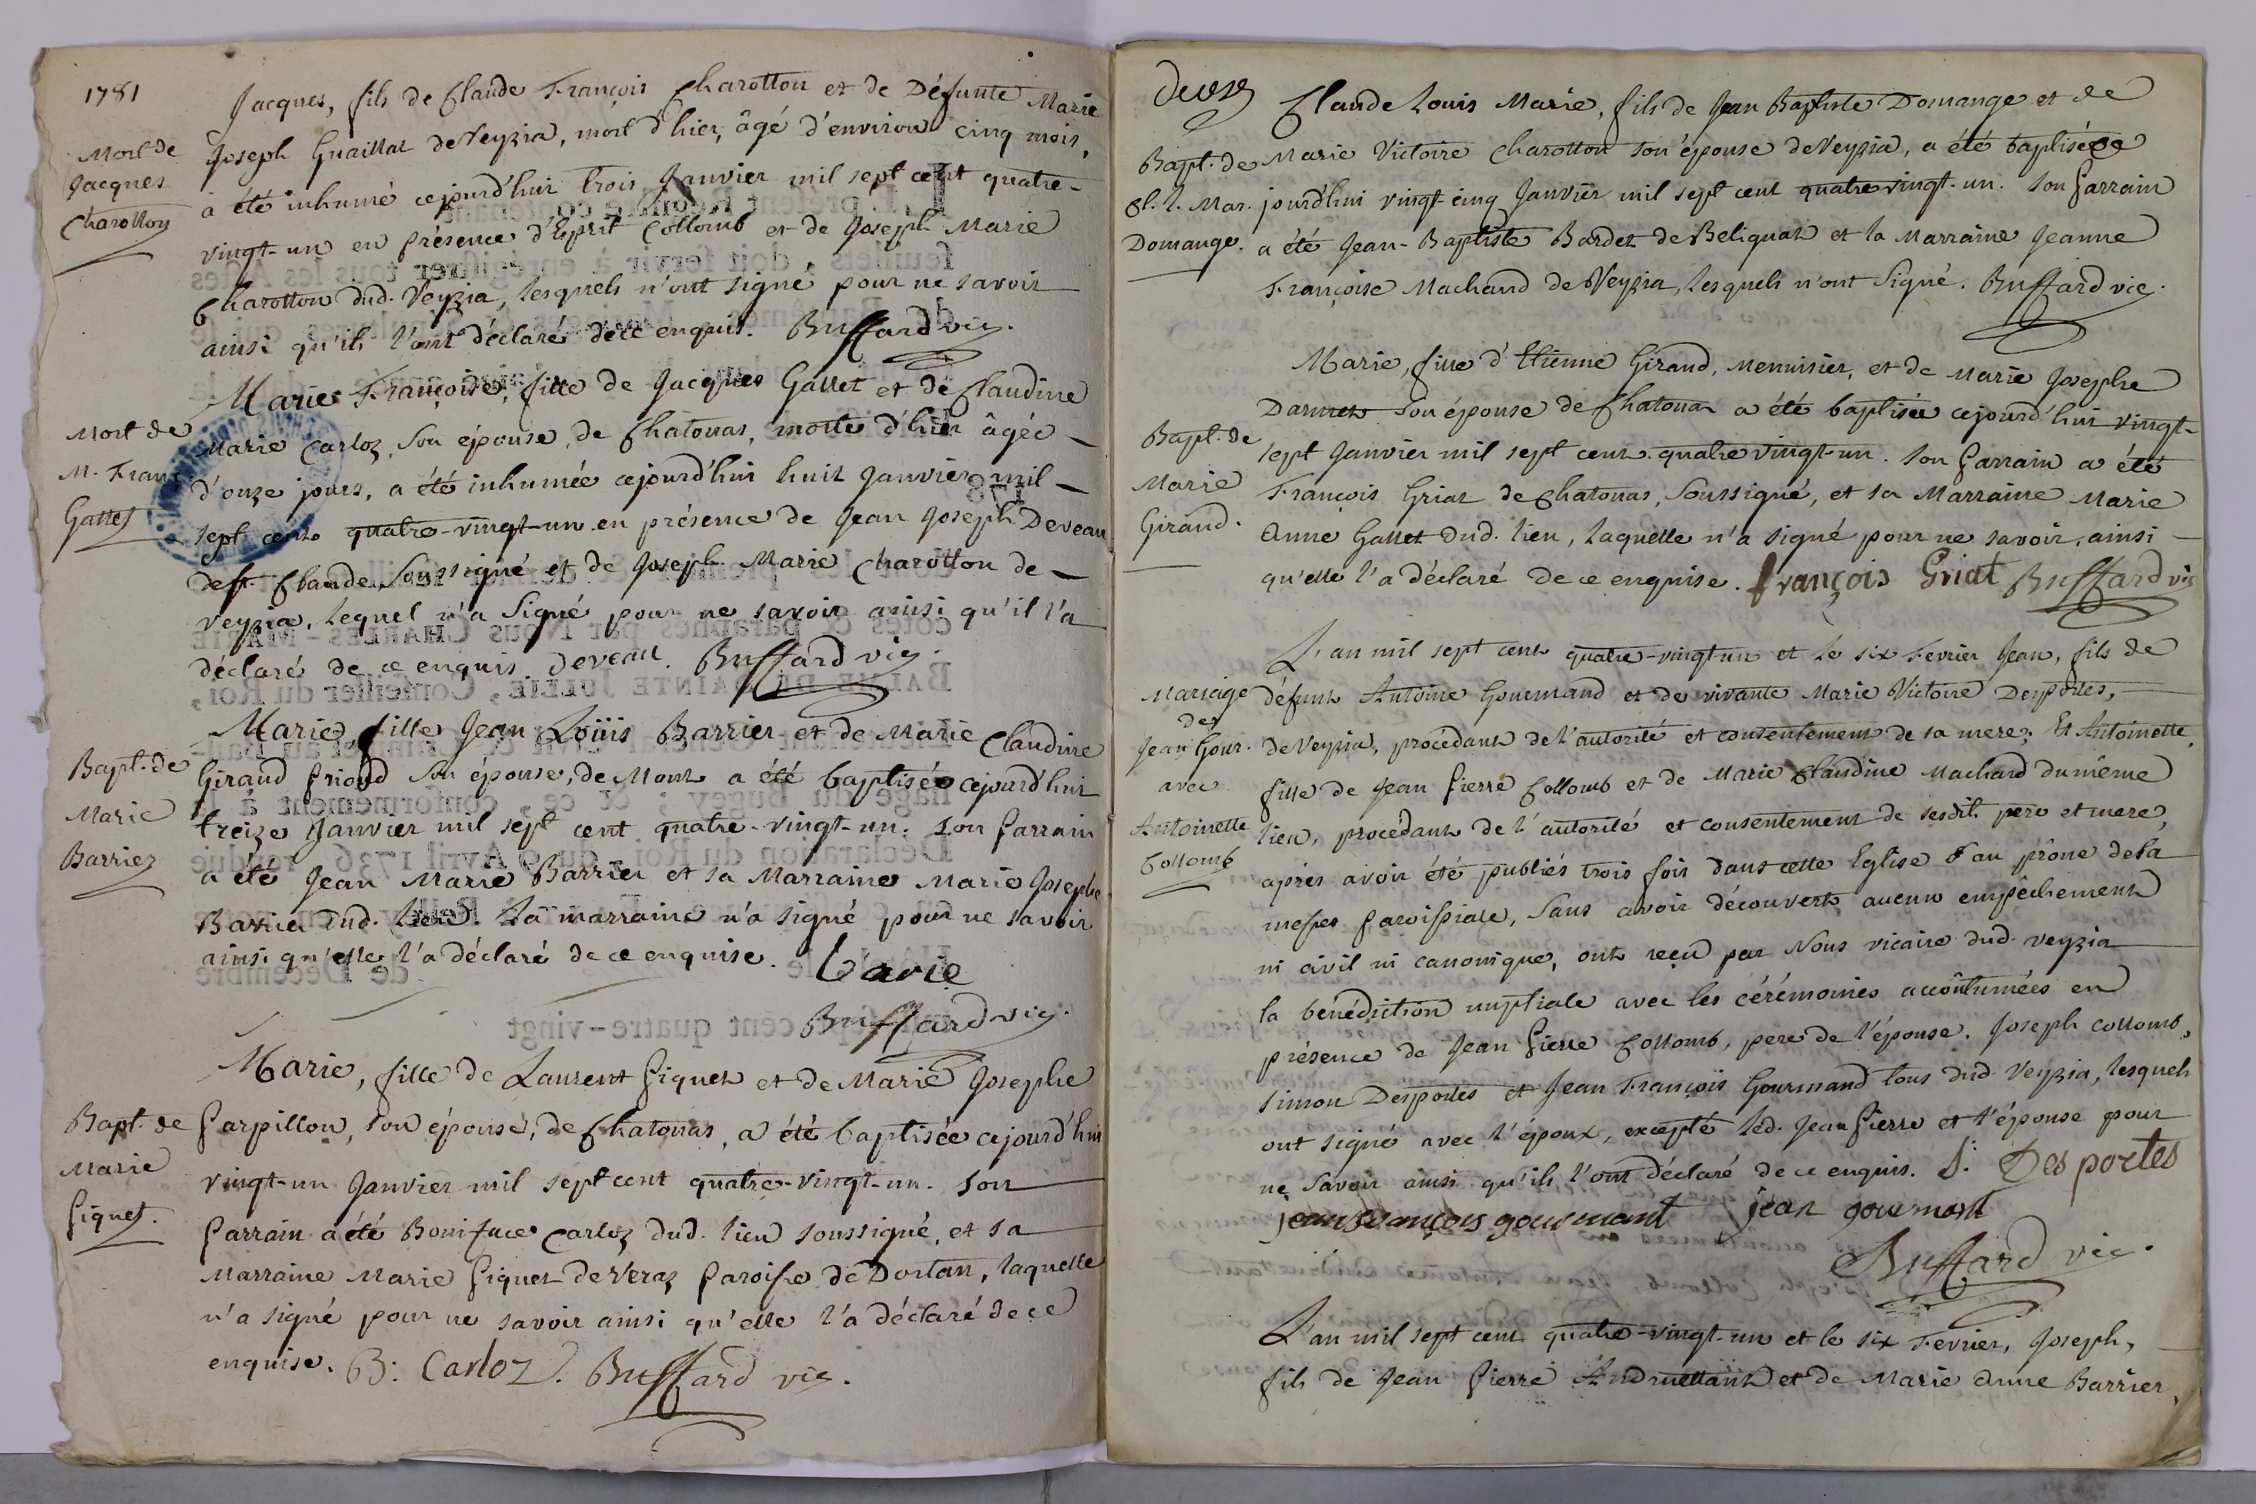 1781
Jacques, fils de Claude François Charotton et de Défunte Marie
Joseph Guaillat de Veyzia, mort d'hier, âgé d'environ cinq mois,
a été inhumé cejourd'hui trois Janvier mil sept cent quatre-
vingt-un en présence d'Esprit Collomb et de Joseph Marie
Charotton dud. Veyzia, lesquels n'ont signé pour ne savoir
ainsi qu'ils l'ont déclaré de ce enquis. Buffard vic.
Mort de
Jacques
Charotton
Marie Françoise, fille de Jacques Gallet et de Claudine
Marie Carloz, son épouse, de Chatonas, morte d'hier âgée
d'onze jours, a été inhumée cejourd'hui huit Janvier mil
sept cent quatre-vingt-un en présence de Jean Joseph Deveau
de st. Claude, soussigné et de Joseph Marie Charotton de
Veyzia, lequel n'a signé pour ne savoir ainsi qu'il l'a
déclaré de ce enquis. Deveau. Buffard vic.
Mort de
M. Franç
Gallet
Marie, fille Jean Loüis Barrier et de Marie Claudine
Giraud son épouse, de Mont a été baptisée cejourd'hui
treize Janvier mil sept cent quatre-vingt-un. Son Parrain
a été Jean Marie Barrier et sa Marraine Marie Josephe
Barrier dud. lieu. La marraine n'a signé pour ne savoir
ainsi qu'elle l'a déclaré de ce enquise. barie
Buffard vic.
Bapt. de
Marie
Barrier
Marie, fille de Laurent Piquet et de Marie Josephe
Parpillon, son épouse, de Chatonas, a été baptisée cejourd'hui
vingt-un Janvier mil sept cent quatre-vingt-un. Son
Parrain a été Boniface Carloz dud. lieu soussigné, et sa
Marraine Marie Piquet de Veraz Paroisse de Dortan, laquelle
n'a signé pour ne savoir ainsi qu'elle l'a déclaré de ce
enquise. B: Carloz. Buffard vic.
Bapt. de
Marie
Piquet.
deux
Claude Louis Marie, fils de Jean Baptiste Domange et de
Marie Victoire Charotton son épouse de Veyzia, a été baptisé ce
jourd'hui vingt-cinq Janvier mil sept cent quatre vingt-un. Son Parrain
a été Jean-Baptiste Bardet de Beliquat et la Marraine Jeanne
Françoise Machard de Veyzia, lesquels n'ont signé. Buffard vic.
Bapt. de
Cl. L. Mar.
Domange.
Marie, fille d'Etienne Giraud, Menuisier, et de Marie Josephe
son épouse de Chatonas a été baptisée cejourd'hui vingt-
sept Janvier mil sept cent quatre vingt-un. Son Parrain a été
François Griat de Chatonas, soussigné, et sa Marraine Marie
Anne Gallet dud. lieu, laquelle n'a signé pour ne savoir, ainsi
qu'elle l'a déclaré de ce enquise. françois Griat Buffard vic
Bapt. de
Marie
Giraud.
L'an mil sept cent quatre-vingt-un et le six Fevrier Jean, fils de
défunt Antoine Gourmand et de vivante Marie Victoire Desportes,
de Veyzia, procédant de l'autorité et consentement de sa mere; Et Antoinette,
fille de Jean Pierre Collomb et de Marie Claudine Machard du même
lieu, procédant de l'autorité et consentement de sesdit. pere et mere,
après avoir été publiés trois fois dans cette Eglise & au prône de la
messes Paroissiale, sans avoir découvert aucun empêchement
ni civil ni canonique, ont reçu par Nous vicaire dud. Veyzia
la bénédiction nuptiale avec les cérémonies accoûtumées en
présence de Jean Pierre Collomb, pere de l'épouse, Joseph Collomb,
Simon Desportes et Jean François Gourmand tous dud. Veyzia, lesquels
ont signé avec l'époux, excepté led. Jean Pierre et l'épouse pour
ne savoir ainsi qu'ils l'ont déclaré de ce enquis. S: Desportes
jean françois gourmant jean gourmant
Buffard vic.
Mariage
des
Jean Gour.
avec
Antoinette
Collomb
L'an mil sept cent quatre-vingt-un et le six Fevrier, Joseph,
fils de Jean Pierre Andruettant et de Marie Anne Barrier,